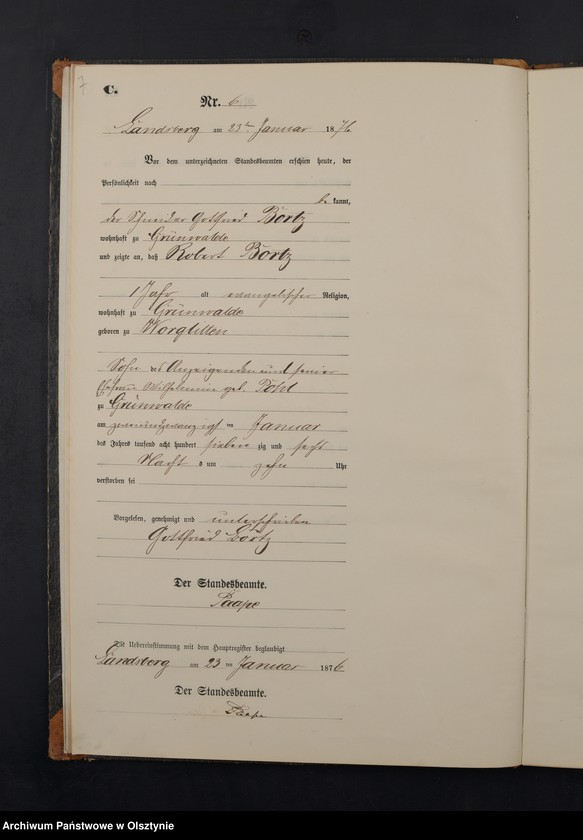 7
C.
Nr. 6
Landsberg am 23ten Januar 1876
Vor dem unterzeichneten Standesbeamten erschien heute, der
Persönlichkeit nach
be kannt,
der Schneider Gottfried Bortz
wohnhaft zu Grünwalde
und zeigte an, daß Robert Bortz
1 Jahr alt evangelischer Religion,
wohnhaft zu Grünwalde
geboren zu Worglitten
Sohn des Anzeigenden und seiner
Ehefrau Wilhelmine geb. Pohl
zu Grünwalde
am zweiundzwanzigsten Januar
des Jahres tausend acht hundert sieben zig und sechs
Nacht s um zehn Uhr
verstorben sei
Vorgelesen, genehmigt und unterschrieben
Gottfried Bortz
Der Standesbeamte.
Paape
Die Uebereinstimmung mit dem Hauptregister beglaubigt
Landsberg am 23 ten Januar 1876
Der Standesbeamte.
Paape
Archiwum Państwowe w Olsztynie